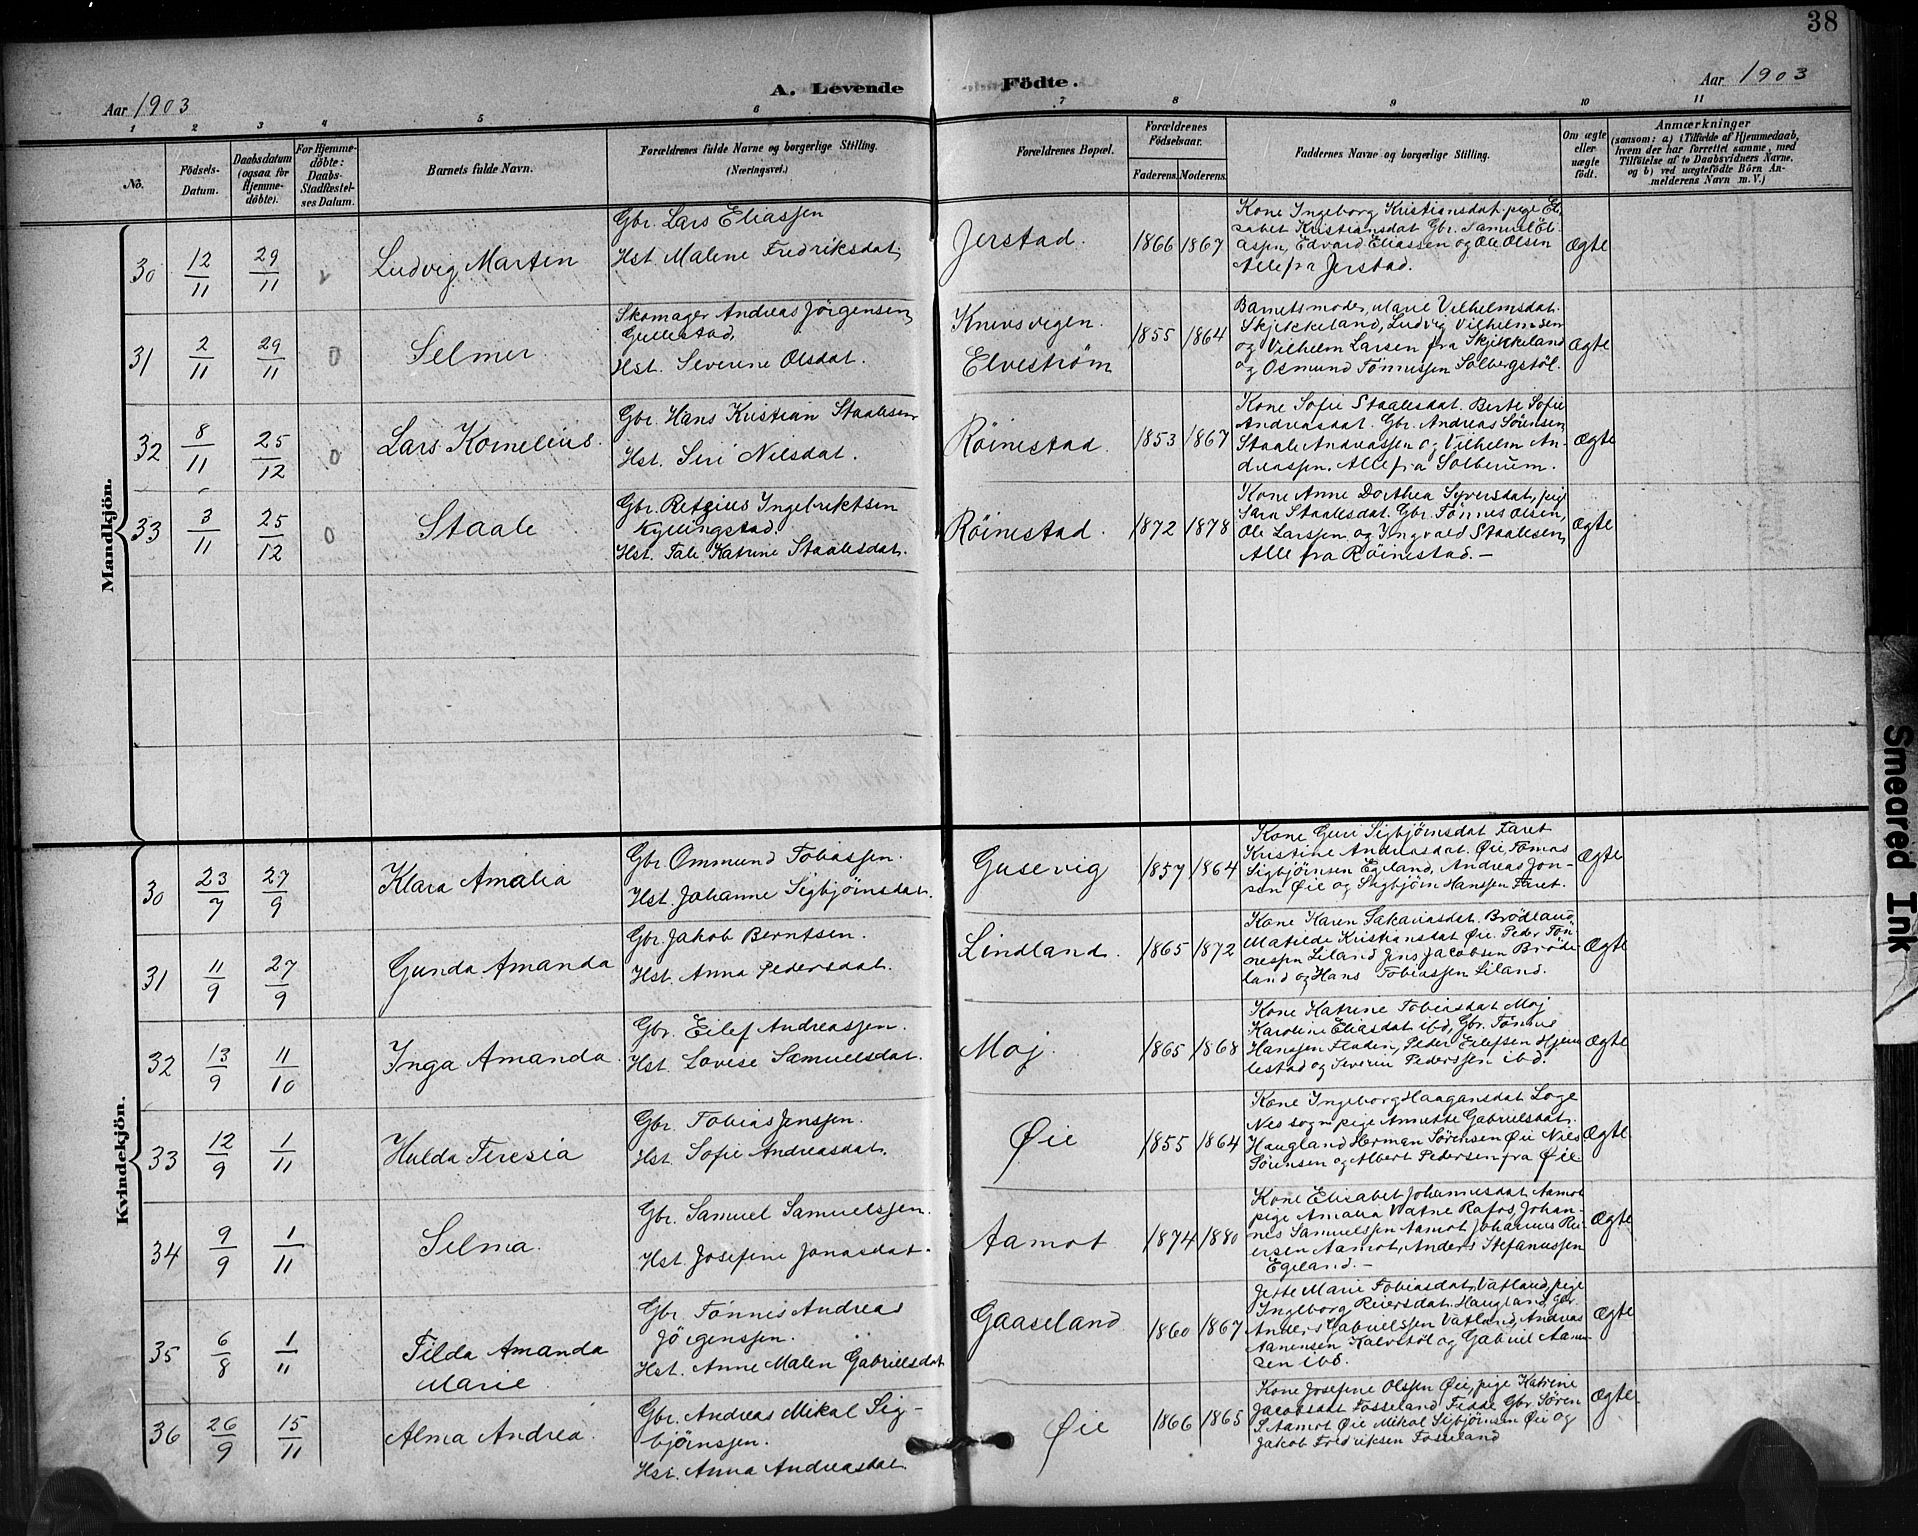 38
Aar 1903
A. Levende Födte.
Aar 1903
1 2 3 4 5 6 7 8 9 10 11
No.
Födsels-
Datum.
Daabsdatum
(ogsaa for
Hjemme-
döbte).
For Hjemme-
döbte:
Daabs-
Stadfæstel-
ses Datum.
Barnets fulde Navn.
Forældrenes fulde Navne og borgerlige Stilling.
(Næringsvei.)
Forældrenes Bopæl.
Forældrenes
Födselsaar.
Faderens. Moderens.
Faddernes Navne og borgerlige Stilling.
Om ægte
eller
uægte
födt.
Anmærkninger
(saasom: a) i Tilfælde af Hjemmedaab,
hvem der har forrettet samme, med
Tilföielse af to Daabsvidners Navne,
og b) ved uægtefödte Börn An-
melderens Navn m. V.)
Mandkjön.
30 12/11 29/11
Ludvig Martin
Gbr. Lars Eliassen
Hst. Malene Fredriksdat.
Jerstad. 1866 1867
Kone Ingeborg Kristiansdat. pige El-
sabet Kristiansdat Gbr. Samuel El-
iassen, Edvard Eliassen og Ole Olsen
Alle fra Jerstad.
Ægte
31 2/11 29/11 0
Selmer
Skomager Andreas Jörgensen
Gullestad,
Hst. Severine Olsdat.
Knivsvigen.
Elveström
1855 1864
Barnets moder, Marie Vilhelmsdat.
Skjekkeland, Ludvig Vilhelmsen
og Vilhelm Larsen fra Skjekkeland
og Osmund Tönnessen Solbergstöl.
Ægte
32 8/11 25/12 0
Lars Kornelius.
Gbr. Hans Kristian Staalesen
Hst. Siri Nilsdat.
Röinestad. 1853 1867
Kone Sofie Staalesdat. Berte Sofie
Andreasdat. Gbr. Andreas Sörensen
Staale Andreassen og Vilhelm An-
dreassen. Alle fra Solberum.
Ægte
33 3/11 25/12 0
Staale
Gbr. Retzius Ingebrektsen
Kyllingstad.
Hst. Tale Katrine Staalesdat.
Röinestad. 1872 1878
Kone Anne Dorthea Syversdat, pige
Sara Staalesdat. Gbr. Tönnes Olsen,
Ole Larssen og Ingvald Staalesen,
Alle fra Röinestad. —
Ægte
Kvindekjön.
30 23/7 27/9
Klara Amalia
Gbr. Ommund Tobiassen.
Hst. Johanne Sigbjörnsdat.
Gusevig 1857 1864
Kone Guri Sigbjörnsdat Faret
Kristine Andreasdat. Øie Tomas
Sigbjörnsen Egeland, Andreas Jon-
sen Øie og Sigbjörn Hanssen Faret.
Ægte
31 11/9 27/9
Gunda Amanda
Gbr. Jakob Berntsen.
Hst. Anna Pedersdat.
Lindland. 1865 1872
Kone Karen Sakariasdat. Brödland
Matilde Kristiansdat Øie. Peder Tön-
nessen Liland Jens Jacobsen Bröde-
land og Hans Tobiassen Liland.
Ægte
32 13/9 11/10
Inga Amanda.
Gbr. Eilef Andreassen.
Hst. Lovise Samuelsdat.
Moj. 1865 1868
Kone Katrine Tobiasdat Moj
Karoline Eliasdat ibd, Gbr. Tönnes
Hanssen Fladen, Peder Eilefsen Hjem
lestad og Severin Pederssen ibd.
Ægte
33 12/9 1/11
Hulda Teresia
Gbr. Tobias Jenssen.
Hst. Sofie Andreasdat.
Øie 1855 1864
Kone Ingeborg Haagensdat Loge
Nes sogn pige Annette Gabrielsdat.
Haugland Herman Sørensen Øie Niels
Sørensen og Albert Pedersen fra Øie
Ægte
34 9/9 1/11
Selma.
Gbr. Samuel Samuelssen.
Hst. Josefine Jonasdat.
Aamot 1874 1880
Kone Elisabet Johannesdat Aamot
pige Amalia Vatne Rafos, Johan-
nes Samuelssen Aamot Johannes Rei-
ersen Aamot, Anders Stefanussen
Egeland. —
Ægte
35 6/8 1/11
Tilda Amanda
Marie
Gbr. Tönnes Andreas
Jörgenssen.
Hst. Anne Malen Gabrielsdat
Gaaseland 1860 1867
Jerte Marie Tobiasdat, Vatland, pige
Ingeborg Reiersdat. Haugland, Gbr.
Anders Gabrielssen Vatland, Andreas
Aanensen Kalvetöl og Gabriel Aanen-
sen ibd.
Ægte
36 26/9 15/11
Alma Andrea.
Gbr. Andreas Mikal Sig-
björnssen.
Hst. Anna Andreasdat.
Øie 1866 1865
Kone Josefine Olssen Øie, pige Katrine
Jacobsdat Fosseland Fedde Gbr. Sören
S. Aamot Øie Mikal Sigbjörnsen Øie og
Jakob Fredriksen Fosseland
Ægte
Smeared Ink